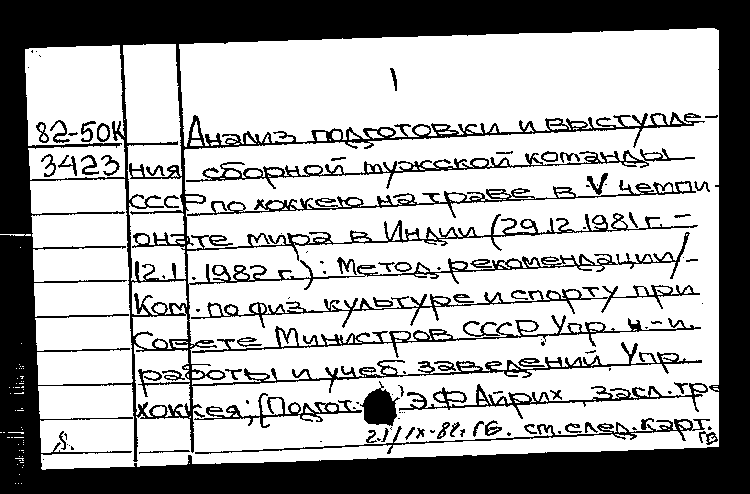 1
82-50К Анализ подготовки и выступле-
3423 ния сборной мужской команды
СССР по хоккею на траве в V чемпи-
онате мира в Индии (29.12.1981 г. -
12.1.1982 г.): Метод. рекомендации / -
Ком. по физ. культуре и спорту при
Совете Министров СССР, Упр. н.-и.
работы и учеб. заведений, Упр.
хоккея; [Подгот. Э.Ф Айрих, засл. тре
IX-82г. ГБ. ст. след. карт.